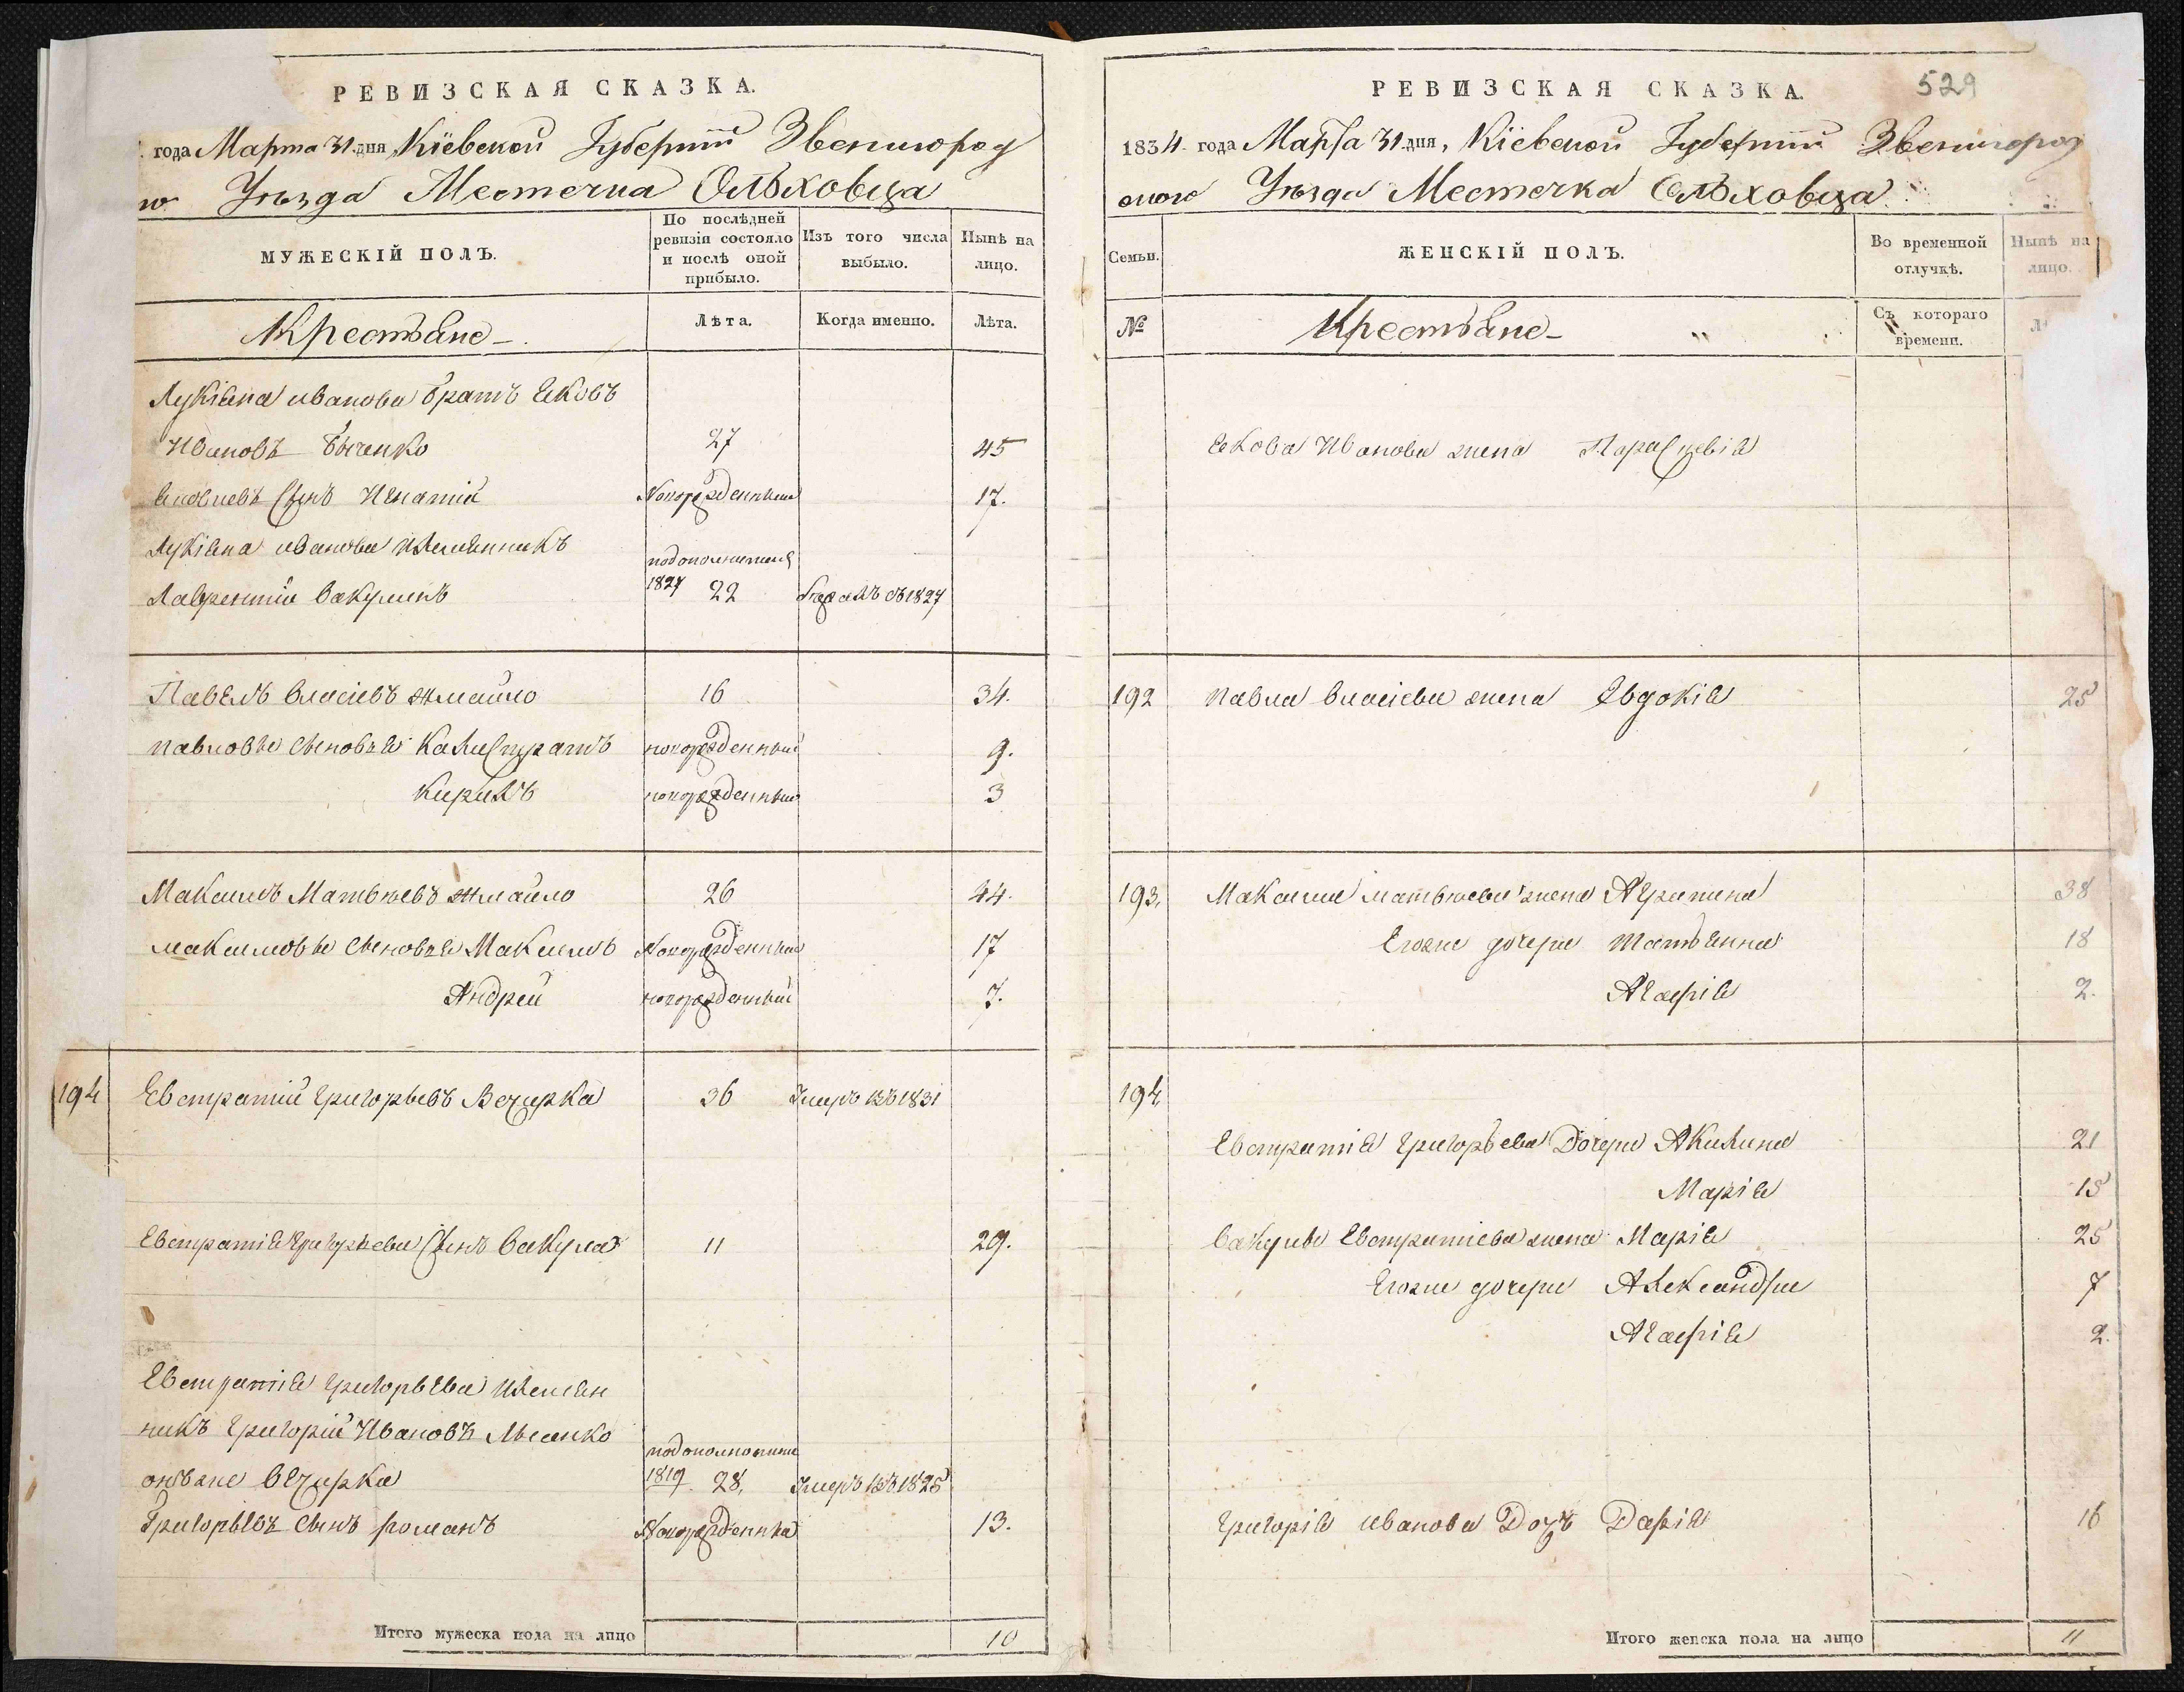 РЕВИЗСКАЯ СКАЗКА.
года Марта 31 дня, Кіевской Губерніи Звенигород
го Уѣзда Местечка Ольховца
МУЖЕСКІЙ ПОЛЪ.
По послѣдней ревизіи состояло и послѣ оной прибыло.
Изъ того числа выбыло.
Нынѣ на лицо.
Крестьяне
Лѣта.
Когда именно.
Лѣта.
Лукіяна иванова братъ Яковъ
Ивановъ 27 45
Яковлевъ Сынъ Игнатій Новорожденный 17.
Лукіяна иванова племянникъ
Лаврентій вакулинъ 1827 22 1827
Павелъ власіевъ жмайло 16 34.
павловы сыновья Калистратъ новорожденный 9.
Кирилъ новорожденный 3
Максимъ Матвѣевъ жмайло 26 44.
максимовы сыновья Максимъ Новорожденный 17
Андрей новорожденный 7.
194 Евстратій григорьевъ Вечирка 36 Умеръ въ 1831
Евстратія григорьева Сынъ вакула 11 29.
Евстратія григорьева племян
никъ григорій Ивановъ
онъ же вечирка 1819 28, Умеръ въ 1825
Григорьевъ сынъ романъ Новорожденный 13.
Итого мужеска пола на лицо 10
529
РЕВИЗСКАЯ СКАЗКА.
1834 года Марта 31 дня, Кіевской Губерніи Звенигород
скаго Уѣзда Местечка Ольховца
Семьи.
ЖЕНСКІЙ ПОЛЪ.
Во временной отлучкѣ.
Нынѣ на лицо.
№
Крестьяне
Съ котораго времени.
Якова Иванова жена Параскевія
192 павла власіева жена Евдокія 25
193, Максима матвѣева жена Агрипина 38
Егоже дочери татьянна 18
Агафія 2.
194
Евстратія григорьева Дочери Акилина 21
Марія 15
вакулы Евстратіева жена Марія 25
Егоже дочери Александра 7
Агафія 2.
григорія иванова Дочь Дарія 16
Итого женска пола на лицо 11